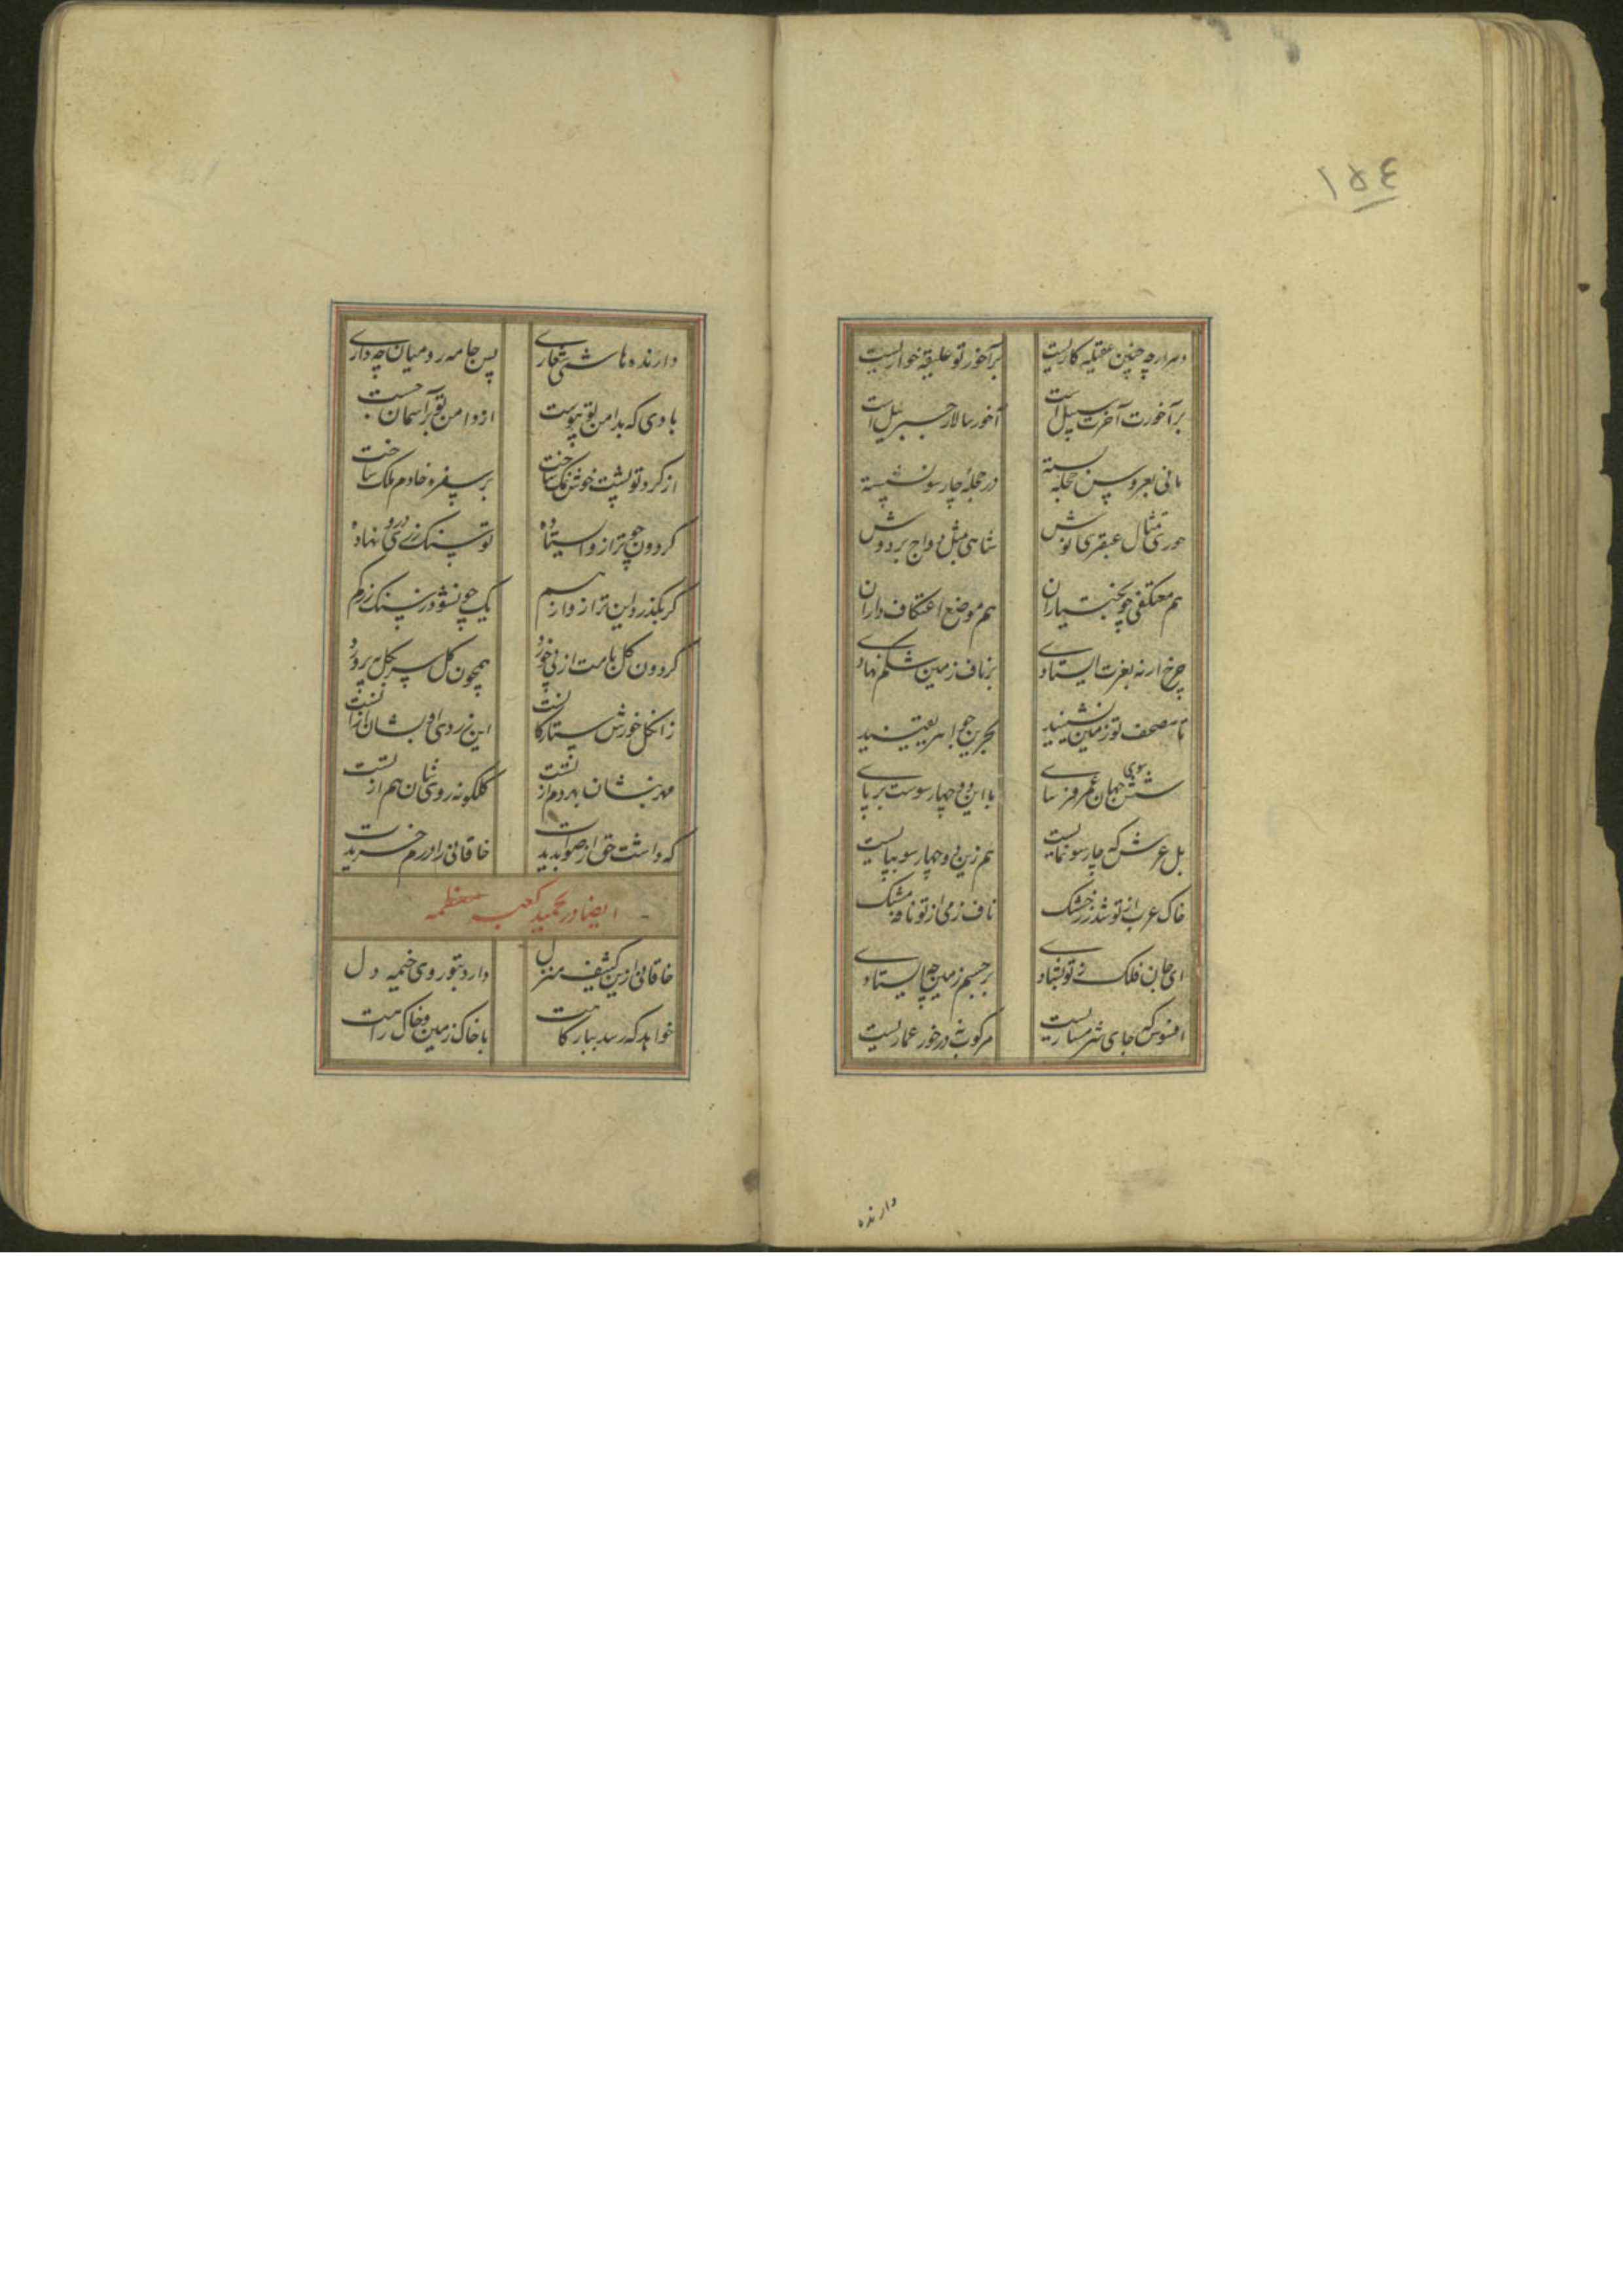 ١٥٤
دهر ارچه چنین عقیله کاریست بر آخور تو علیقه خواریست
بر آخورت آخرت سبیل است آخور سالار جبرئیل است
مانی بعروس حجله بسته در حجله چار سو نشسته
حوری تمثال عبقری پوش شاهی مثل دواج بر دوش
هم معتکفی چو بختیاران هم موضع اعتکاف داران
چرخ ار نه بغرت ایستادی بر ناف زمین شکم نهادی
تا مصحف تو زمین نشیند بحرین جواهر یقیند
شش سوی جهان عمر فرسای با این دو چهار سوست بر پای
بل عرش که چار سو نمایست هم زین دو چهار سو بپایست
خاک عرب از تو شد زر خشک ناف زمی از تو نافه مشک
ای جان فلک نی تو بنهادی بر جسم زمین چه ایستادی
افسوس که جای شرمساریست مرکوب نه در خور عماریست
دارنده
دارنده هاشمی شعاری پس جامه رومیان چه داری
بادی که بدامن تو پیوست از دامن تو بر آسمان جست
از کرد تو پشت خوش نمک ساخت بر سفره خادم ملک ساخت
کردون چو ترازو ایستاده تو سنک زری درو نهاده
کر بکذرد این ترازو از هم یک جو نشود ز سنک زر کم
کردون کل بامت از پی خورد همچون کل سر بکل بپرورد
زان کل خورش ستارکانست این زردی رویشان از آنست
مهد بنشان بهر دم از تست کلکونه رویشان هم از تست
که داشت حق از صوابدیدت خاقانی را درم خریدت
ایضا در تحمید کعبه معظمه
خاقانی ازین کثیف منزل دارد بتو روی خیمه دل
خواهد که رسد ببارکاهت با خاک زمین و خاک راهت